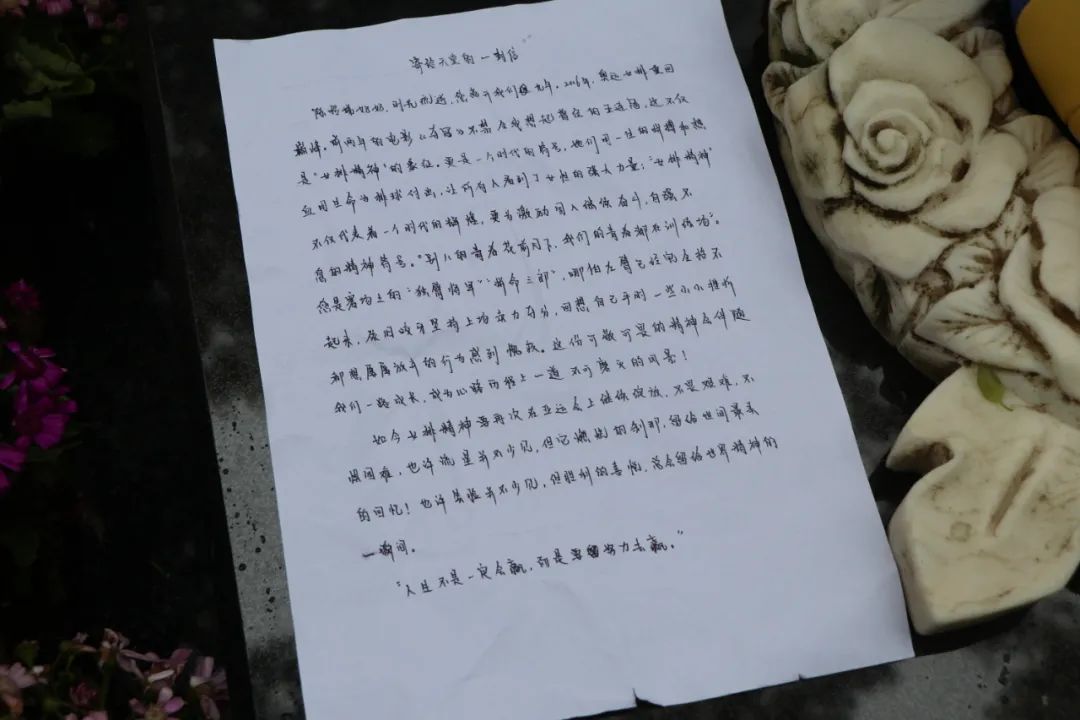 寄给天堂的一封信
陈招娣奶奶，时光荏苒，您离开我们已九年，2016年，奥运女排重回
巅峰。前两年的电影《夺冠》不禁在我想起曾经的王连冠，这不仅
是“女排精神”的象征，更是一个时代的符号，她们用一生的拼搏和热
血用生命为排球付出，让所有人看到了女性的强大力量；“女排精神”
不仅代表着一个时代的辉煌，更为激励国人继续奋斗，自强不
息的精神符号。“别人的青春花前月下，我们的青春都在训练场”。
您是赛场上的“独臂将军”“拼命三郎”，哪怕左臂已经抬不
起来，依旧咬牙坚持上场奋力夺分，回想自己平时一些小小挫折
都想放弃的行为感到惭愧。这份可敬可畏的精神会伴随
我们一路成长，成为心路历程上一道不可磨灭的风景！
如今女排精神要再次在亚运会上继续绽放，不畏艰难，不
惧困难，也许流星并不少见，但它燃烧的刹那，留给世间最美
的回忆！也许失败并不少见，但胜利的喜悦，总会留给世界精神的
一瞬间。
“人生不是一定会赢，而是要努力去赢。”